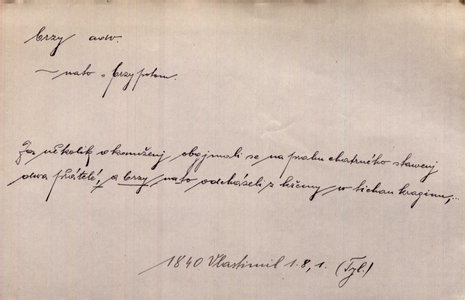 brzy adv.
~ nato = brzy potom.
Za několik okamženj obgjmali se na prahu chatrného stawenj
dwa přátelé, a brzy nato odcházeli z krčmy w tichau kraginu,..
1840 Vlastimil 1.8, 1. (Tyl.)